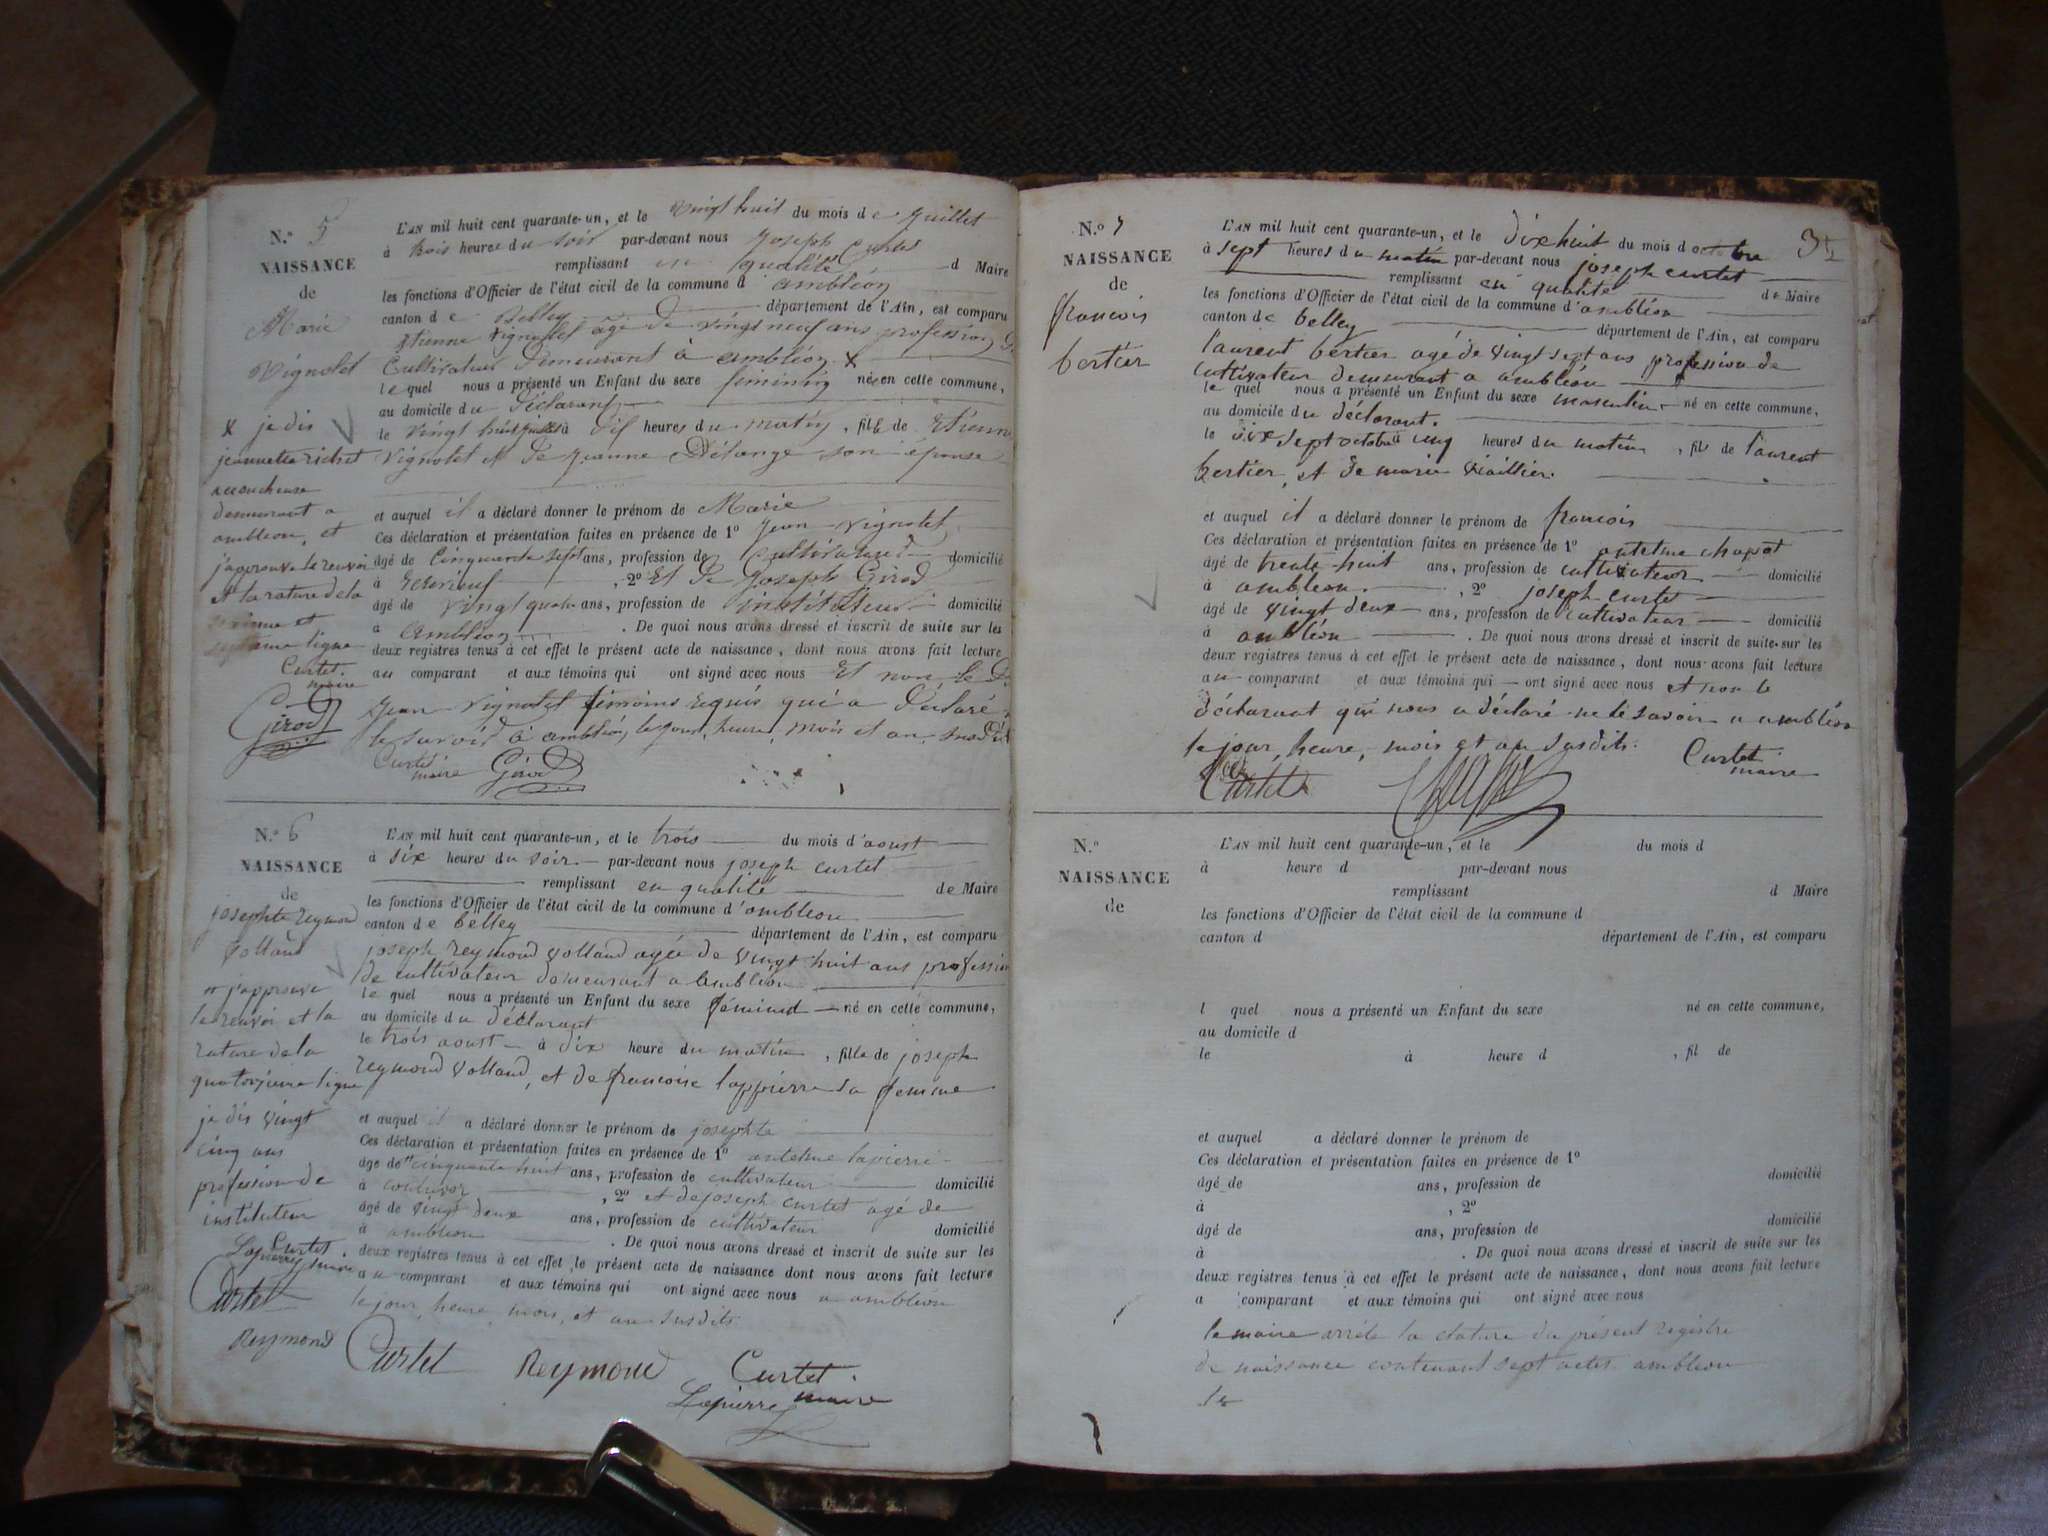 N.º 5
NAISSANCE
de
Marie
Vignolet
L'AN mil huit cent quarante-un, et le vingt huit du mois de Juillet
à trois heures du soir par-devant nous Joseph Curtet
remplissant en qualité d Maire
les fonctions d'Officier de l'état civil de la commune d'ambléon
canton de Belley département de l'Ain, est comparu
Etienne Vignolet agé de vingt neuf ans profession
Cultivateur demeurant à ambléon X
le quel nous a présenté un Enfant du sexe feminin né en cette commune,
au domicile du déclarant
le vingt huit à dix heures du matin, fille de Etienne
Vignolet et de Jeanne son épouse
et auquel il a déclaré donner le prénom de Marie
Ces déclaration et présentation faites en présence de 1º Jean Vignolet
âgé de Cinquante sept ans, profession de Cultivateur domicilié
à , 2º Et de Joseph Girod
âgé de vingt quatre ans, profession de instituteur domicilié
à Ambléon . De quoi nous avons dressé et inscrit de suite sur les
deux registres tenus à cet effet le présent acte de naissance, dont nous avons fait lecture
au comparant et aux témoins qui ont signé avec nous Et non le
Jean Vignolet témoins requis qui a déclaré
le savoir à ambléon, le jour, heure, mois et an susdit
Curtet maire Girod
X je dis
jeannette richet
accoucheuse
demeurant a
ambleon, et
j'approuve le renvoi
et la rature de la
et
septième ligne
Curtet
maire
Girod
N.º 6
NAISSANCE
de
josephte reymond
volland
L'AN mil huit cent quarante-un, et le trois du mois d'aoust
à six heures du soir par-devant nous joseph curtet
remplissant en qualité de Maire
les fonctions d'Officier de l'état civil de la commune d'ambleon
canton de belley département de l'Ain, est comparu
joseph reymond volland agée de vingt huit ans profession
de cultivateur demeurant a ambléon
le quel nous a présenté un Enfant du sexe féminin né en cette commune,
au domicile du déclarant
le trois aoust à dix heure du matin, fille de joseph
reymond volland, et de francoise lappierre sa femme
et auquel il a déclaré donner le prénom de josephte
Ces déclaration et présentation faites en présence de 1º antelme lapierre
âgé de cinquante huit ans, profession de cultivateur domicilié
à , 2º et de joseph curtet agé de
âgé de vingt deux ans, profession de cultivateur domicilié
à ambleon . De quoi nous avons dressé et inscrit de suite sur les
deux registres tenus à cet effet, le présent acte de naissance dont nous avons fait lecture
au comparant et aux témoins qui ont signé avec nous a ambleon
le jour, heure, mois, et an susdits
Curtet Reymond Curtet
Lapierre maire
j'approuve
le renvoi et la
rature de la
quatorzieme ligne
je dis vingt
cinq ans
profession de
instituteur
Curtet
Lapierre maire
Curtet
Reymond
35
N.º 7
NAISSANCE
de
francois
bertier
L'AN mil huit cent quarante-un, et le dixhuit du mois d octobre
à sept heures du matin par-devant nous joseph curtet
remplissant en qualité de Maire
les fonctions d'Officier de l'état civil de la commune d'ambléon
canton de belley département de l'Ain, est comparu
laurent bertier agé de vingt sept ans profession de
cultivateur demeurant a ambléon
le quel nous a présenté un Enfant du sexe masculin né en cette commune,
au domicile du déclarant.
le dix sept octobre à cinq heures du matin, fils de laurent
bertier, et de marie
et auquel il a déclaré donner le prénom de francois
Ces déclaration et présentation faites en présence de 1º antelme chapot
âgé de trente-huit ans, profession de cultivateur domicilié
à ambleon , 2º joseph curtet
âgé de vingt deux ans, profession de cultivateur domicilié
à ambléon . De quoi nous avons dressé et inscrit de suite sur les
deux registres tenus à cet effet le présent acte de naissance, dont nous avons fait lecture
au comparant et aux témoins qui ont signé avec nous et non le
déclarant qui nous a déclaré ne le savoir a ambléon
le jour, heure, mois et an susdits.
Curtet Curtet
maire
N.º
NAISSANCE
de
L'AN mil huit cent quarante-un, et le du mois d
à heure d par-devant nous
remplissant d Maire
les fonctions d'Officier de l'état civil de la commune d
canton d département de l'Ain, est comparu
l quel nous a présenté un Enfant du sexe né en cette commune,
au domicile d
le à heure d , fil de
et auquel a déclaré donner le prénom de
Ces déclaration et présentation faites en présence de 1º
âgé de ans, profession de domicilié
à , 2º
âgé de ans, profession de domicilié
à . De quoi nous avons dressé et inscrit de suite sur les
deux registres tenus à cet effet le présent acte de naissance, dont nous avons fait lecture
a comparant et aux témoins qui ont signé avec nous
le maire arrête la cloture du présent registre
de naissance contenant sept actes ambleon
le